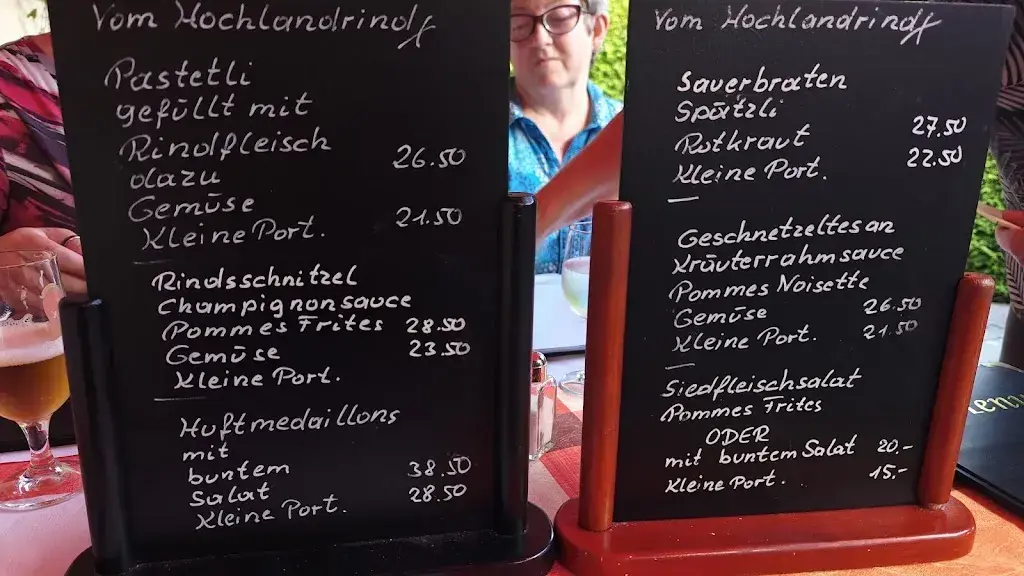 Vom Hochlandrind
Pastetli
gefüllt mit
Rindfleisch 26.50
dazu
Gemüse
Kleine Port. 21.50
Rindsschnitzel
Champignonsauce
Pommes Frites 28.50
Gemüse 23.50
Kleine Port.
Huftmedaillons
mit
buntem 38.50
Salat 28.50
Kleine Port.
Vom Hochlandrind
Sauerbraten
Spätzli
Rotkraut 27.50
Kleine Port. 22.50
Geschnetzeltes an
Kräuterrahmsauce
Pommes Noisette
Gemüse 26.50
Kleine Port. 21.50
Siedfleischsalat
Pommes Frites
ODER
mit buntem Salat 20.-
Kleine Port. 15.-